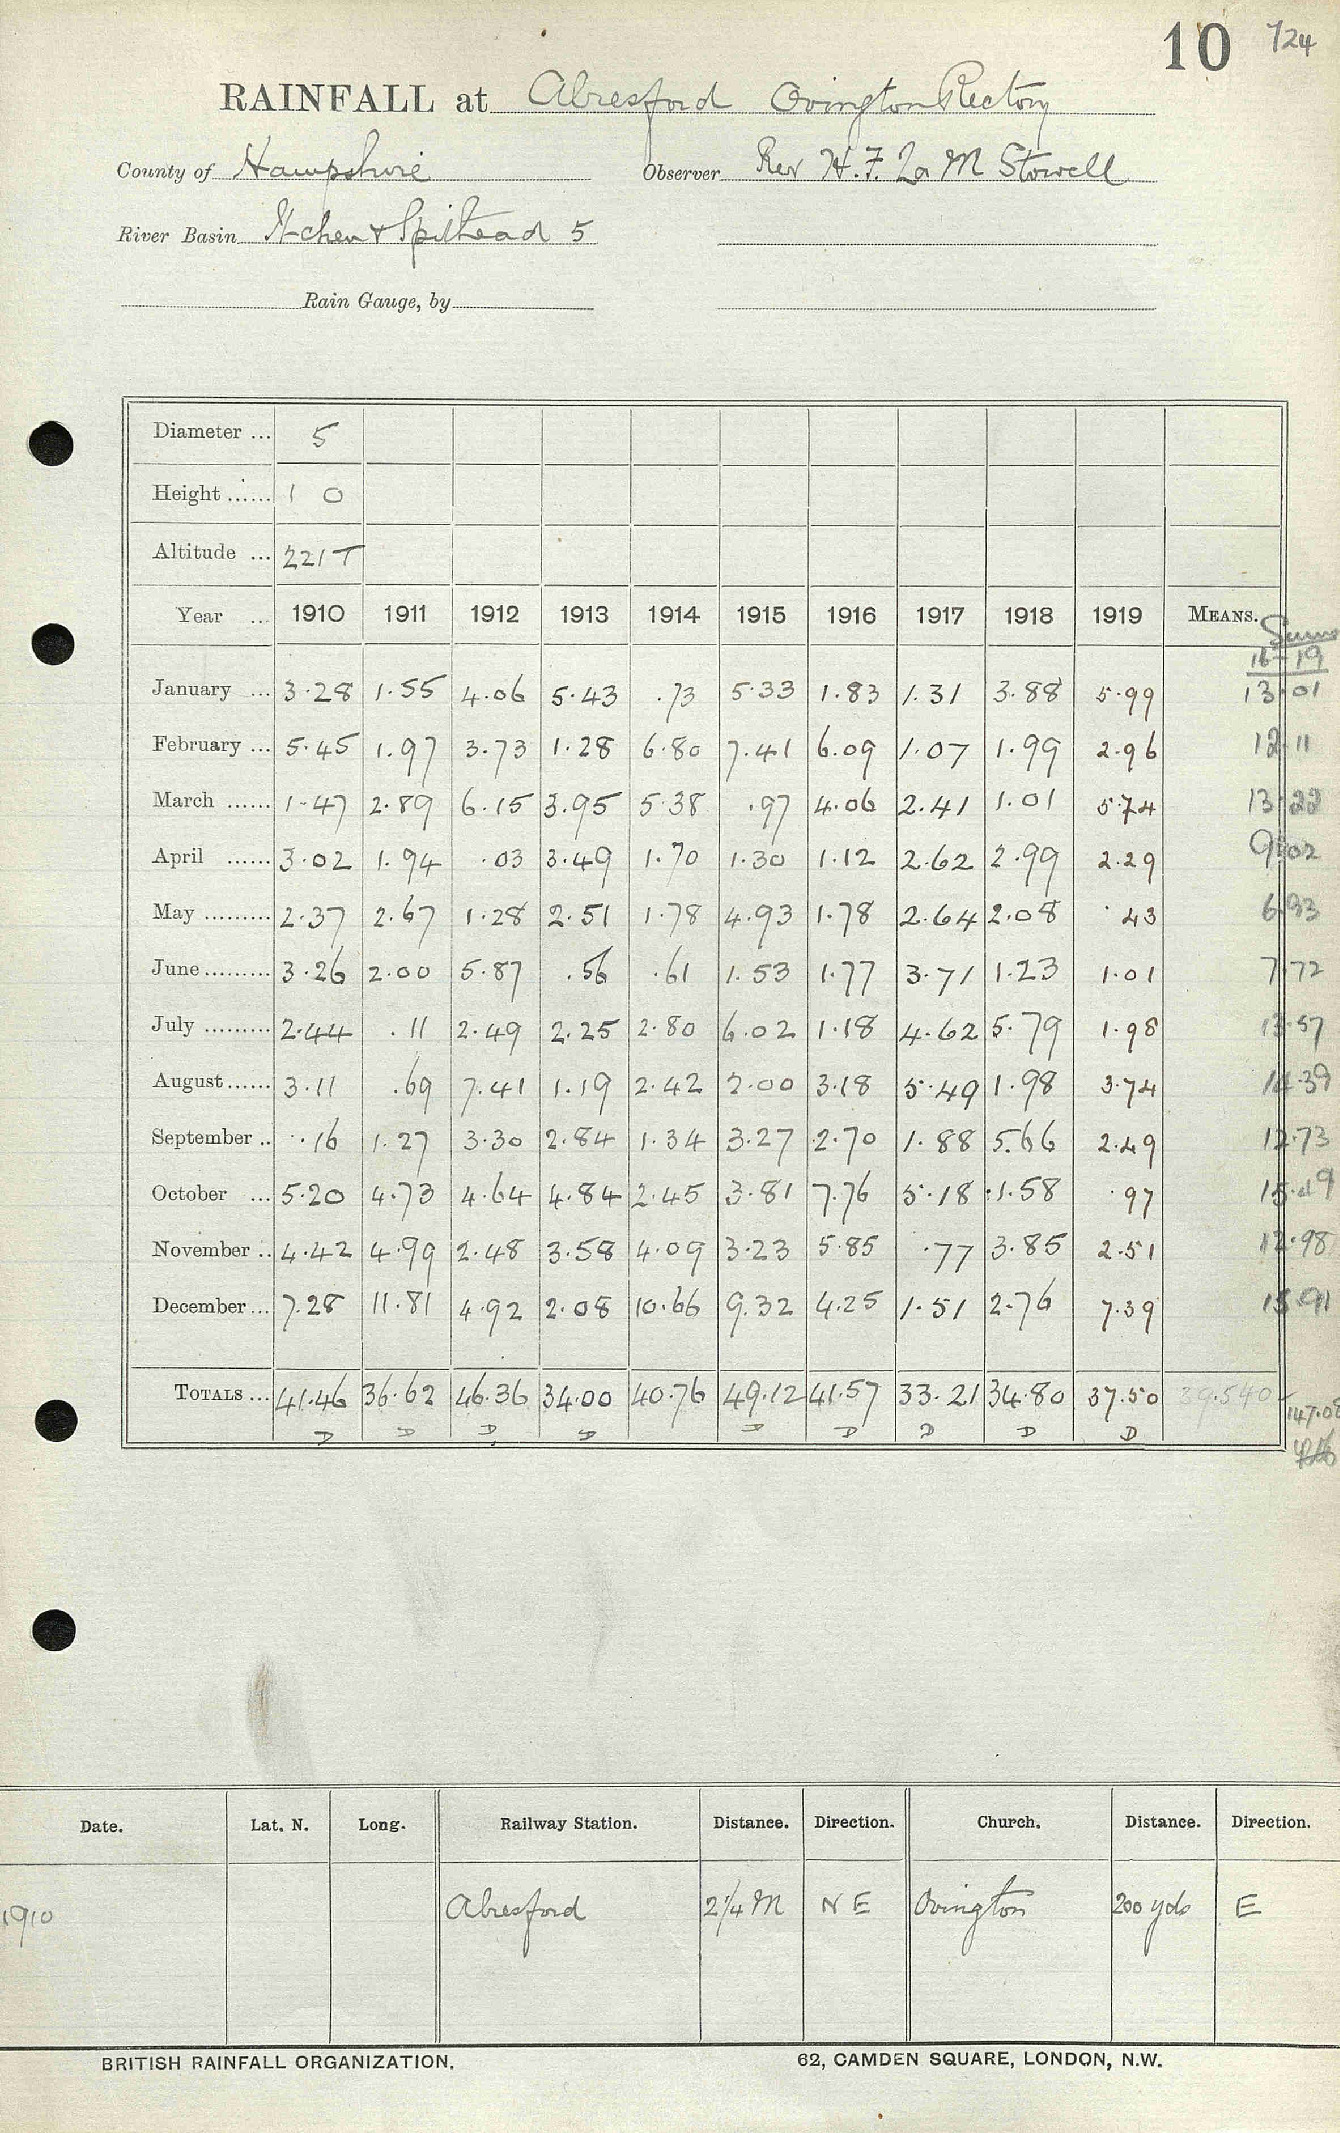 10 724
RAINFALL at Alresford Ovington Rectory
County of Hampshire Observer Rev H. F. La M Stowell
River Basin Itchen & Spithead 5
Rain Gauge, by
Diameter ... 5
Height ...... 1 0
Altitude ... 221 T
Year ... 1910 1911 1912 1913 1914 1915 1916 1917 1918 1919 MEANS. Sums
16-19
January ... 3.28 1.55 4.06 5.43 .73 5.33 1.83 1.31 3.88 5.99 13.01
February ... 5.45 1.97 3.73 1.28 6.80 7.41 6.09 1.07 1.99 2.96 12.11
March ...... 1.47 2.89 6.15 3.95 5.38 .97 4.06 2.41 1.01 5.74 13.22
April ...... 3.02 1.94 .03 3.49 1.70 1.30 1.12 2.62 2.99 2.29 9.02
May ......... 2.37 2.67 1.28 2.51 1.78 4.93 1.78 2.64 2.08 .43 6.93
June ......... 3.26 2.00 5.87 .56 .61 1.53 1.77 3.71 1.23 1.01 7.72
July ......... 2.44 .11 2.49 2.25 2.80 6.02 1.18 4.62 5.79 1.98 13.57
August ...... 3.11 .69 7.41 1.19 2.42 2.00 3.18 5.49 1.98 3.74 14.39
September .. .16 1.27 3.30 2.84 1.34 3.27 2.70 1.88 5.66 2.49 12.73
October ... 5.20 4.73 4.64 4.84 2.45 3.81 7.76 5.18 1.58 .97 15.49
November .. 4.42 4.99 2.48 3.58 4.09 3.23 5.85 .77 3.85 2.51 12.98
December ... 7.28 11.81 4.92 2.08 10.66 9.32 4.25 1.51 2.76 7.39 15.91
TOTALS ... 41.46 36.62 46.36 34.00 40.76 49.12 41.57 33.21 34.80 37.50 39.540 147.08
D D D D D D D D D
Date. Lat. N. Long. Railway Station. Distance. Direction. Church. Distance. Direction.
1910 Alresford 2¼ M N E Ovington 200 yds E
BRITISH RAINFALL ORGANIZATION. 62, CAMDEN SQUARE, LONDON, N.W.